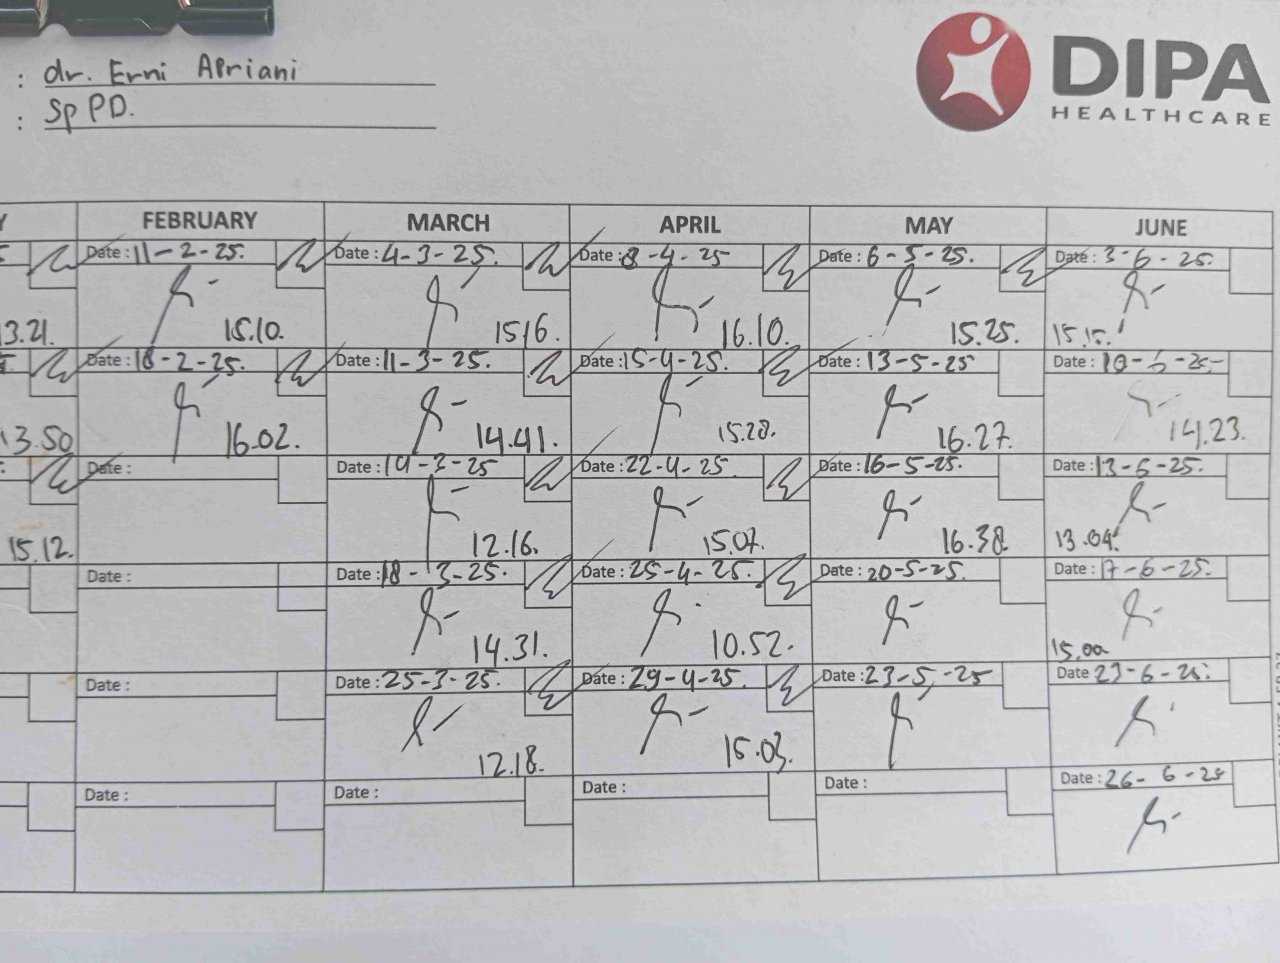 : dr. Erni Apriani
: Sp PD.
DIPA
HEALTHCARE
FEBRUARY MARCH APRIL MAY JUNE
Date : 11-2-25. Date : 4-3-25. Date : 8-4-25 Date : 6-5-25. Date : 3-6-25.
13.21. 15.10. 15.16. 16.10. 15.25. 15.15.
Date : 18-2-25. Date : 11-3-25. Date : 15-4-25. Date : 13-5-25 Date : 10-6-25
13.50 16.02. 14.41. 15.28. 16.27. 14.23.
Date : Date : 14-3-25 Date : 22-4-25. Date : 16-5-25. Date : 13-6-25.
15.12. 12.16. 15.07. 16.38 13.04.
Date : Date : 18-3-25. Date : 25-4-25. Date : 20-5-25. Date : 17-6-25.
14.31. 10.52. 15.00
Date : Date : 25-3-25. Date : 29-4-25. Date : 23-5-25 Date 23-6-25.
12.18. 15.03.
Date : Date : Date : Date : Date : 26-6-25